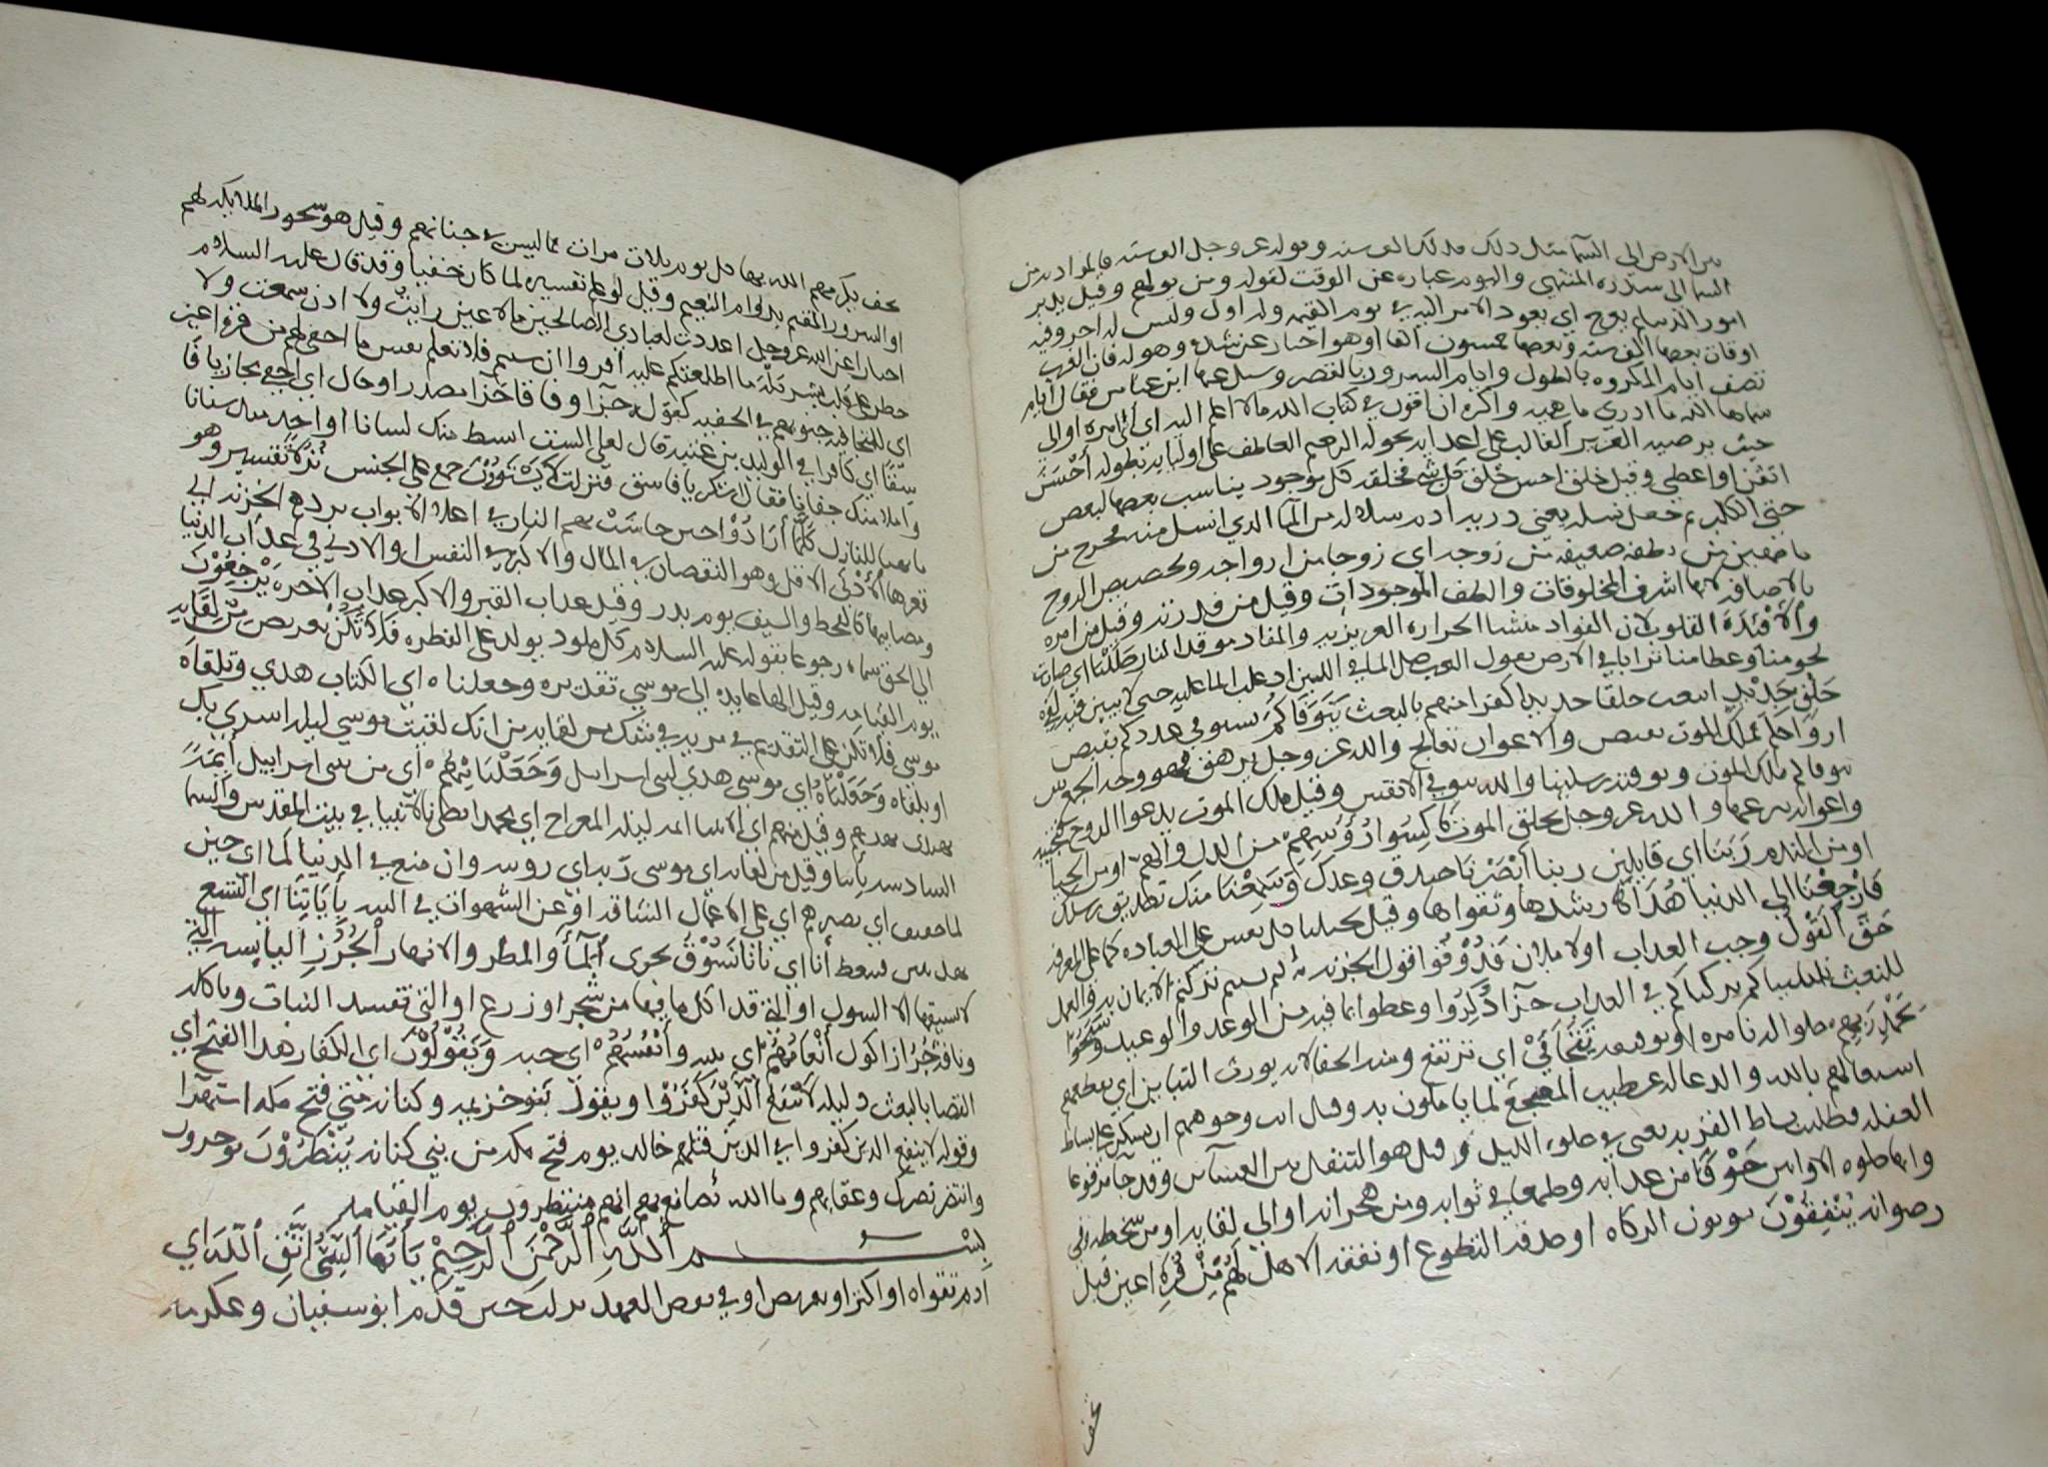 من الارض الى السما مثل ذلك
السما الى سدرة المنتهى واليوم عبارة عن الوقت لقوله ومن يولهم وقيل يدبر
امور الدنيا ثم يعرج اي يعود الامر اليه في يوم القيمة وله اول وليس له اخر وفيه
اوقات بعضها الف سنة وبعضها خمسون الفا او هو اخبار عن شدته وهوله فان العرب
تصف ايام المكروه بالطول وايام السرور بالقصر وسئل عنها ابن عباس فقال ايام
سماها الله ما ادري ما هي واكره ان اقول في كتاب الله ما لا اعلم اليه اي الى امره او الى
حيث يرضيه العزيز الغالب على اعدايه بحوله الرحيم العاطف على اوليايه بطوله أَحْسَنَ
اتقن او اعطى وقيل خلق احسن خلق كل شي مخلقه كل موجود يناسب بعضها لبعض
حتى الكلب ثم جعل نسله يعني ذرية ادم سلالة من الما الذي انسل منه فخرج من
ماء مهين من نطفة ضعيفة من زوجه اي زوجا من ازواجه وتخصيص الروح
بالاضافة لانها اشرف المخلوقات والطف الموجودات وقيل من قدرته وقيل من امره
والأَفْئِدَةَ القلوب لان الفواد منشا الحرارة الغريزية والمفاد موقد النار ضَلَلْنَا اي صارت
لحومنا وعظامنا ترابا في الارض تقول العرب ضل الما في اللبن اذا غلب الما عليه حتى لا يبين فيه لفي
خَلْقٍ جَدِيْدٍ انبعث خلقا جديدا كفرا منهم بالبعث يَتَوَفَّاكُمْ يستوفي عددكم بقبض
ارواحكم مَلَكُ الموت يقبض والاعوان تعالج والله عز وجل يزهق فهو وجه الجمع بين
توفاكم ملك الموت وتوفته رسلنا والله يتوفى الانفس وقيل ملك الموت يدعوا الروح فتجيبه
واعوانه والله عز وجل يخلق الموت نَاكِسُوا رُؤُوسِهِمْ من الذل والهم او من الحيا
او من الندم رَبَّنَا اي قايلين ربنا أَبْصَرْنَا صدق وعدك وَسَمِعْنَا منك تصديق رسلك
فَارْجِعْنَا الى الدنيا هُدَاهَا رشدها وتقواها وقيل
حَقَّ القَوْلُ وجب العذاب اولا ملان فَذُوْقُوا قول الخزنة لهم نسيتم تركتم الايمان به والعمل
للبعث نسيناكم تركناكم في العذاب جزآ ذُكِّرُوا وعظوا بما فيه من الوعد والوعيد وسَبَّحُوا
بِحَمْدِ رَبِّهِمْ صلوا له بامره او بتوفيقه تَتَجَافَى اي ترتفع ومنه الجفا لانه يورث التباين اي يقطعهم
اشتغالهم بالله والدعا له عن طيب المضجع لما يأملون به
الغفلة وطلب بساط القربة يعني في صلوة الليل وقيل هو التنفل بين العشآين وقد جآ مرفوعا
وانها صلوة الاوابين خَوْفًا من عذابه وطمعا في ثوابه ومن هجرانه او الى لقايه او من سخطه والى
رضوانه يُنْفِقُوْنَ يوتون الزكاة او صدقة التطوع او نفقة الاهل لَهُمْ مِنْ قُرَّةِ اعين قيل
تحف
تحف يكرمهم الله بها كل يوم ثلاث مرات مما ليس في جناتهم وقيل هو سجود الملايكة لهم
او السرور المقيم بدوام النعيم وقيل لو علم تفسيره لما كان خفيا وقد قال عليه السلام
اخبارا عن الله عز وجل اعددت لعبادي الصالحين ما لا عين رايت ولا اذن سمعت ولا
خطر على قلب بشر بله ما اطلعتكم عليه اقروا ان شيتم فلا تعلم نفس ما اخفي لهم من قرة اعين
اي للتجافية جنوبهم في الخفية كقوله جزآ وفاقا جَزَآ مصدر او حال اي اخفي مجازيا فَا
سِقًا اي كافرا في الوليد بن عقبة قال لعلي الست ابسط منك لسانا او احد منك سنانا
واملا منك جفانا فقال اسكت يا فاسق فنزلت لَا يَسْتَوُوْنَ جمع على الجنس نُزُلًا تفسيره وهو
ما يهيا للنازل كُلَّمَا أَرَادُوْا حين جاشت بهم النار في اعلا الابواب يردهم الخزنة الى
قعرها الأَدْنَى الاقل وهو النقصان في المال والاكبر في النفس او الادنى في عذاب الدنيا
ومصايبها كالقحط والسيف يوم بدر وقيل عذاب القبر والاكبر عذاب الاخرة يَرْجِعُوْنَ
الى الحق سماه رجوعا بقوله عليه السلام كل مولود يولد على الفطرة فَلَا تَكُنْ تعريض مِنْ لِقَايِهِ
يوم القيامة وقيل الها عايدة الى موسى تقديره وجعلناه اي الكتاب هدى وتلقاه
موسى فلا تكن على التقديم في مرية في شك من لقايه من انك لقيت موسى ليلة اسري بك
او بلقاه وَجَعَلْنَاهُ اي موسى هدى لبني اسرايل وَجَعَلْنَا مِنْهُمْ اي من بني اسراييل أَيِمَّةً
يهدى بهديهم وقيل منهم اي الانبيا ايمة ليلة المعراج اي يا محمد اعطى بالانبيا في بيت المقدس والسما
السادسة باتباعه وقيل من لقايه اي موسى ربه اي روسه وان منع في الدنيا لَمَّا اي حين
لما خفف اي بصبرهم اي على الاعمال الشاقة او عن الشهوات في السر بِأَيَاتِنَا اي التسع
أنا اي باننا نَسُوْقُ نجرى المَآءَ والمطر والانهار الجُرُزِ اليابسة التي
لا يسقيها الا السيول او التي قد اكل ما فيها من شجر او زرع او التي تفسد النبات وتاكله
وناقة جُرُزا اكول أَنْعَامُهُمْ اي بتبنه وأَنْفُسُهُمْ اي حبه وَيَقُوْلُوْنَ اي الكفار هذا الفتح اي
القضا بالبعث دليله لَا يَنْفَعُ الَّذِيْنَ كَفَرُوْا ويقول بنو خزيمة وكنانة متى فتح مكة استهزا
وقوله لا ينفع الذين كفروا اي الذين قتلهم خالد يوم فتح مكة من بني كنانة يُنْظَرُوْنَ يوخرون
وانتظر نصرك وعقابهم وما الله صانع بهم انهم منتظرون يوم القيامة
بِسْمِ اللَّهِ الرَّحْمَنِ الرَّحِيْمِ يَأَيُّهَا النَّبِيُّ اتَّقِ اللَّهَ اي
ادم تقواه او اكثر او تعريض او في نقض العهد نزلت حين قدم ابو سفيان وعكرمة